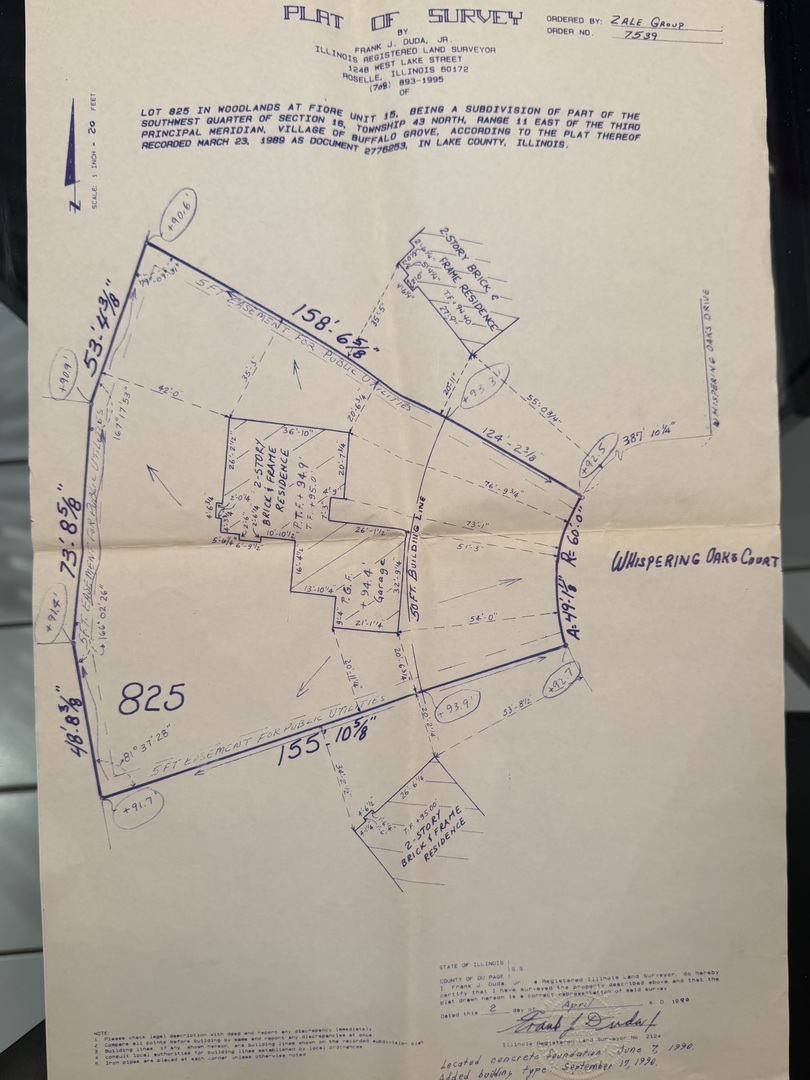 PLAT OF SURVEY
BY
FRANK J. DUDA, JR.
ILLINOIS REGISTERED LAND SURVEYOR
1248 WEST LAKE STREET
ROSELLE, ILLINOIS 60172
(708) 893-1995
OF
ORDERED BY: ZALE GROUP
ORDER NO. 7539
SCALE: 1 INCH - 20 FEET
LOT 825 IN WOODLANDS AT FIORE UNIT 15, BEING A SUBDIVISION OF PART OF THE
SOUTHWEST QUARTER OF SECTION 16, TOWNSHIP 43 NORTH, RANGE 11 EAST OF THE THIRD
PRINCIPAL MERIDIAN, VILLAGE OF BUFFALO GROVE, ACCORDING TO THE PLAT THEREOF
RECORDED MARCH 23, 1989 AS DOCUMENT 2776253, IN LAKE COUNTY, ILLINOIS.
+90.6'
2-STORY BRICK &
FRAME RESIDENCE
T.F. +94.40
53'-4 3/8"
158'-6 5/8"
5 FT EASEMENT FOR PUBLIC UTILITIES
WHISPERING OAKS DRIVE
+90.9'
42'-0
35'-3
35'-5
20'-6 3/4
20'-11"
+93.3'
55'-0 3/4"
387' 10 1/4"
+92.5'
167° 17' 53"
124'-2 3/8
36'-10"
26'-2 1/2
20'-7 3/4
2-STORY
BRICK & FRAME
RESIDENCE
P.T.F. +94.9'
T.F. +95.0'
76'-9 3/4
73'-1"
51'-3"
4'-9"
7'-3
26'-1 1/2"
10'-10 1/2
16'-4 1/2
13'-10 1/4
9'-4"
21'-1 1/4
32'-9 1/4
P.G.F.
+94.4'
Garage
50 FT. BUILDING LINE
73'-8 5/8"
5 FT. EASEMENT FOR PUBLIC UTILITIES
166° 02' 26"
+91.4'
R=60'.0"
A=49'-1 1/8"
WHISPERING OAKS COURT
54'-0
825
48'-8 3/8"
81° 37' 28"
5 FT EASEMENT FOR PUBLIC UTILITIES
155'-10 5/8"
+93.9'
+92.7'
53'-8 1/2
+91.7'
26'-6 1/4
T.F. +95.00
2-STORY
BRICK & FRAME
RESIDENCE
STATE OF ILLINOIS
S.S
COUNTY OF DU PAGE
I, Frank J. Duda, Jr., a Registered Illinois Land Surveyor, do hereby
certify that I have surveyed the property described above and that the
plat drawn hereon is a correct representation of said survey
Dated this 2 day of April A.D. 1990
Frank J Duda Jr
Illinois Registered Land Surveyor No. 2124
Located concrete foundation June 7, 1990.
Added building type: September 17, 1990.
NOTE:
1. Please check legal description with deed and report any discrepancy immediately
2. Compare all points before building by same and report any discrepancies at once
3. Building lines, if any, shown hereon, are building lines shown on the recorded subdivision plat
consult local authorities for building lines established by local ordinances
4. Iron pipes are placed at each corner unless otherwise noted